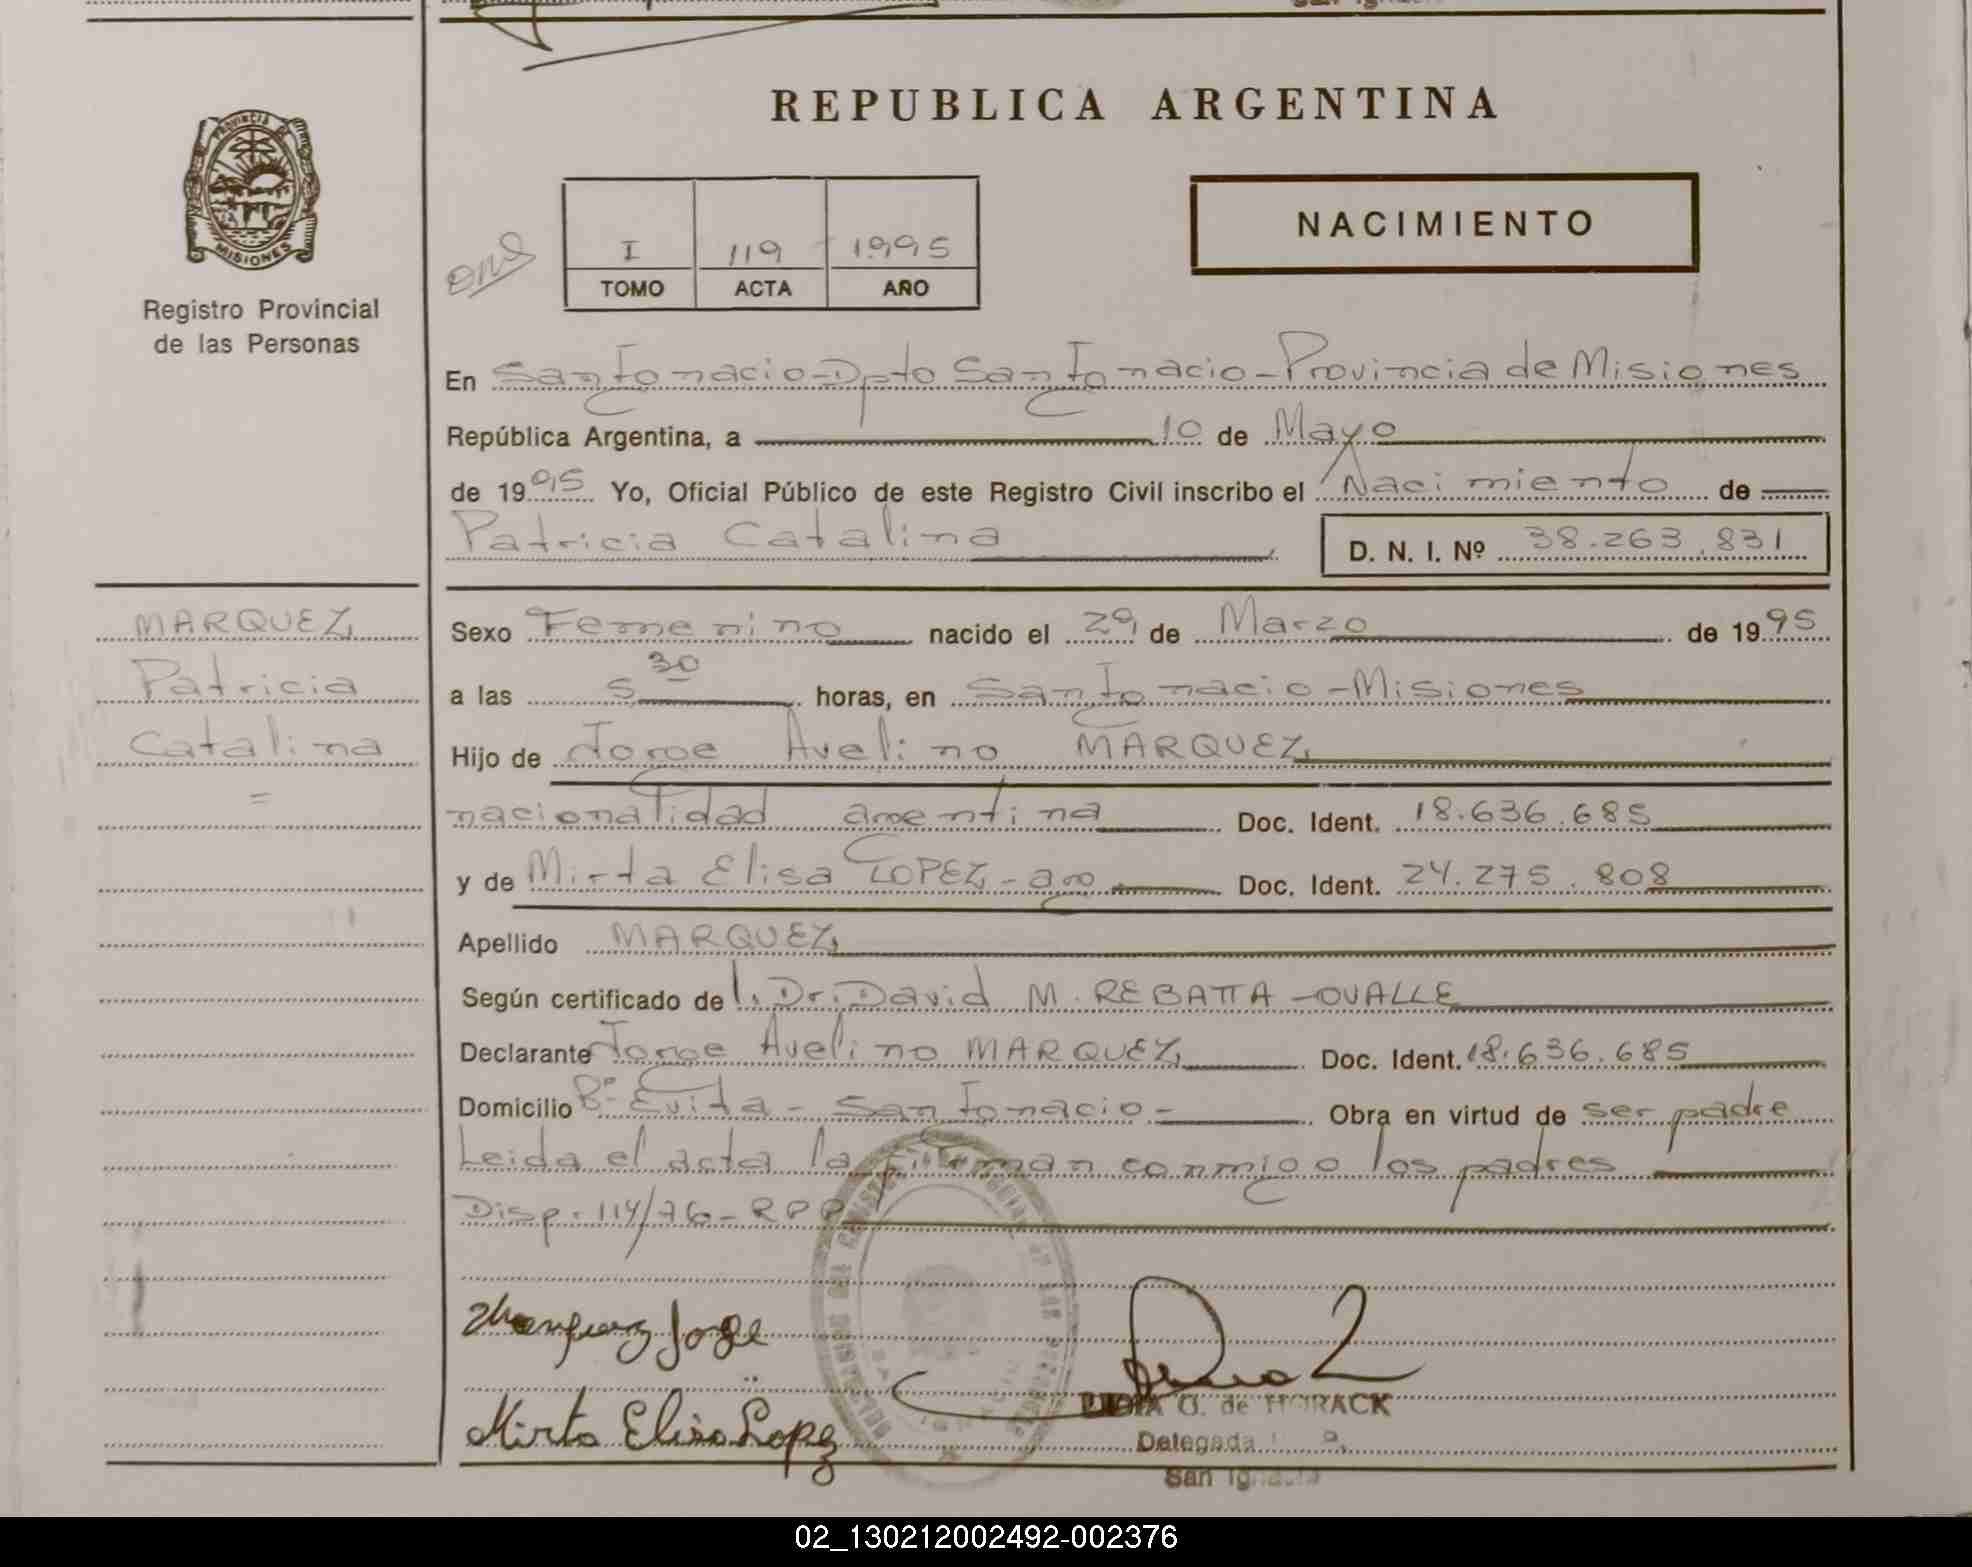 REPUBLICA ARGENTINA
PROVINCIA DE
MISIONES
Registro Provincial
de las Personas
NACIMIENTO
I 119 1995
TOMO ACTA AÑO
En San Ignacio - Dpto San Ignacio - Provincia de Misiones
República Argentina, a 10 de Mayo
de 1995 Yo, Oficial Público de este Registro Civil inscribo el Nacimiento de
Patricia Catalina D. N. I. Nº 38.263.831
MARQUEZ
Patricia
Catalina
=
Sexo Femenino nacido el 29 de Marzo de 1995
a las 5 30 horas, en San Ignacio - Misiones
Hijo de Jorge Avelino MARQUEZ
nacionalidad argentina Doc. Ident. 18.636.685
y de Mirta Elisa LOPEZ - arg Doc. Ident. 24.275.808
Apellido MARQUEZ
Según certificado de l. Dr. David M. REBATTA - OVALLE
Declarante Jorge Avelino MARQUEZ Doc. Ident. 18.636.685
Domicilio Bº Evita - San Ignacio - Obra en virtud de ser padre
Leida el acta la firman conmigo los padres
Disp. 114/76 - RPP
Marquez Jorge
Mirta Elisa Lopez
LIDIA G. de HORACK
Delegada
San Ignacio
02_130212002492-002376